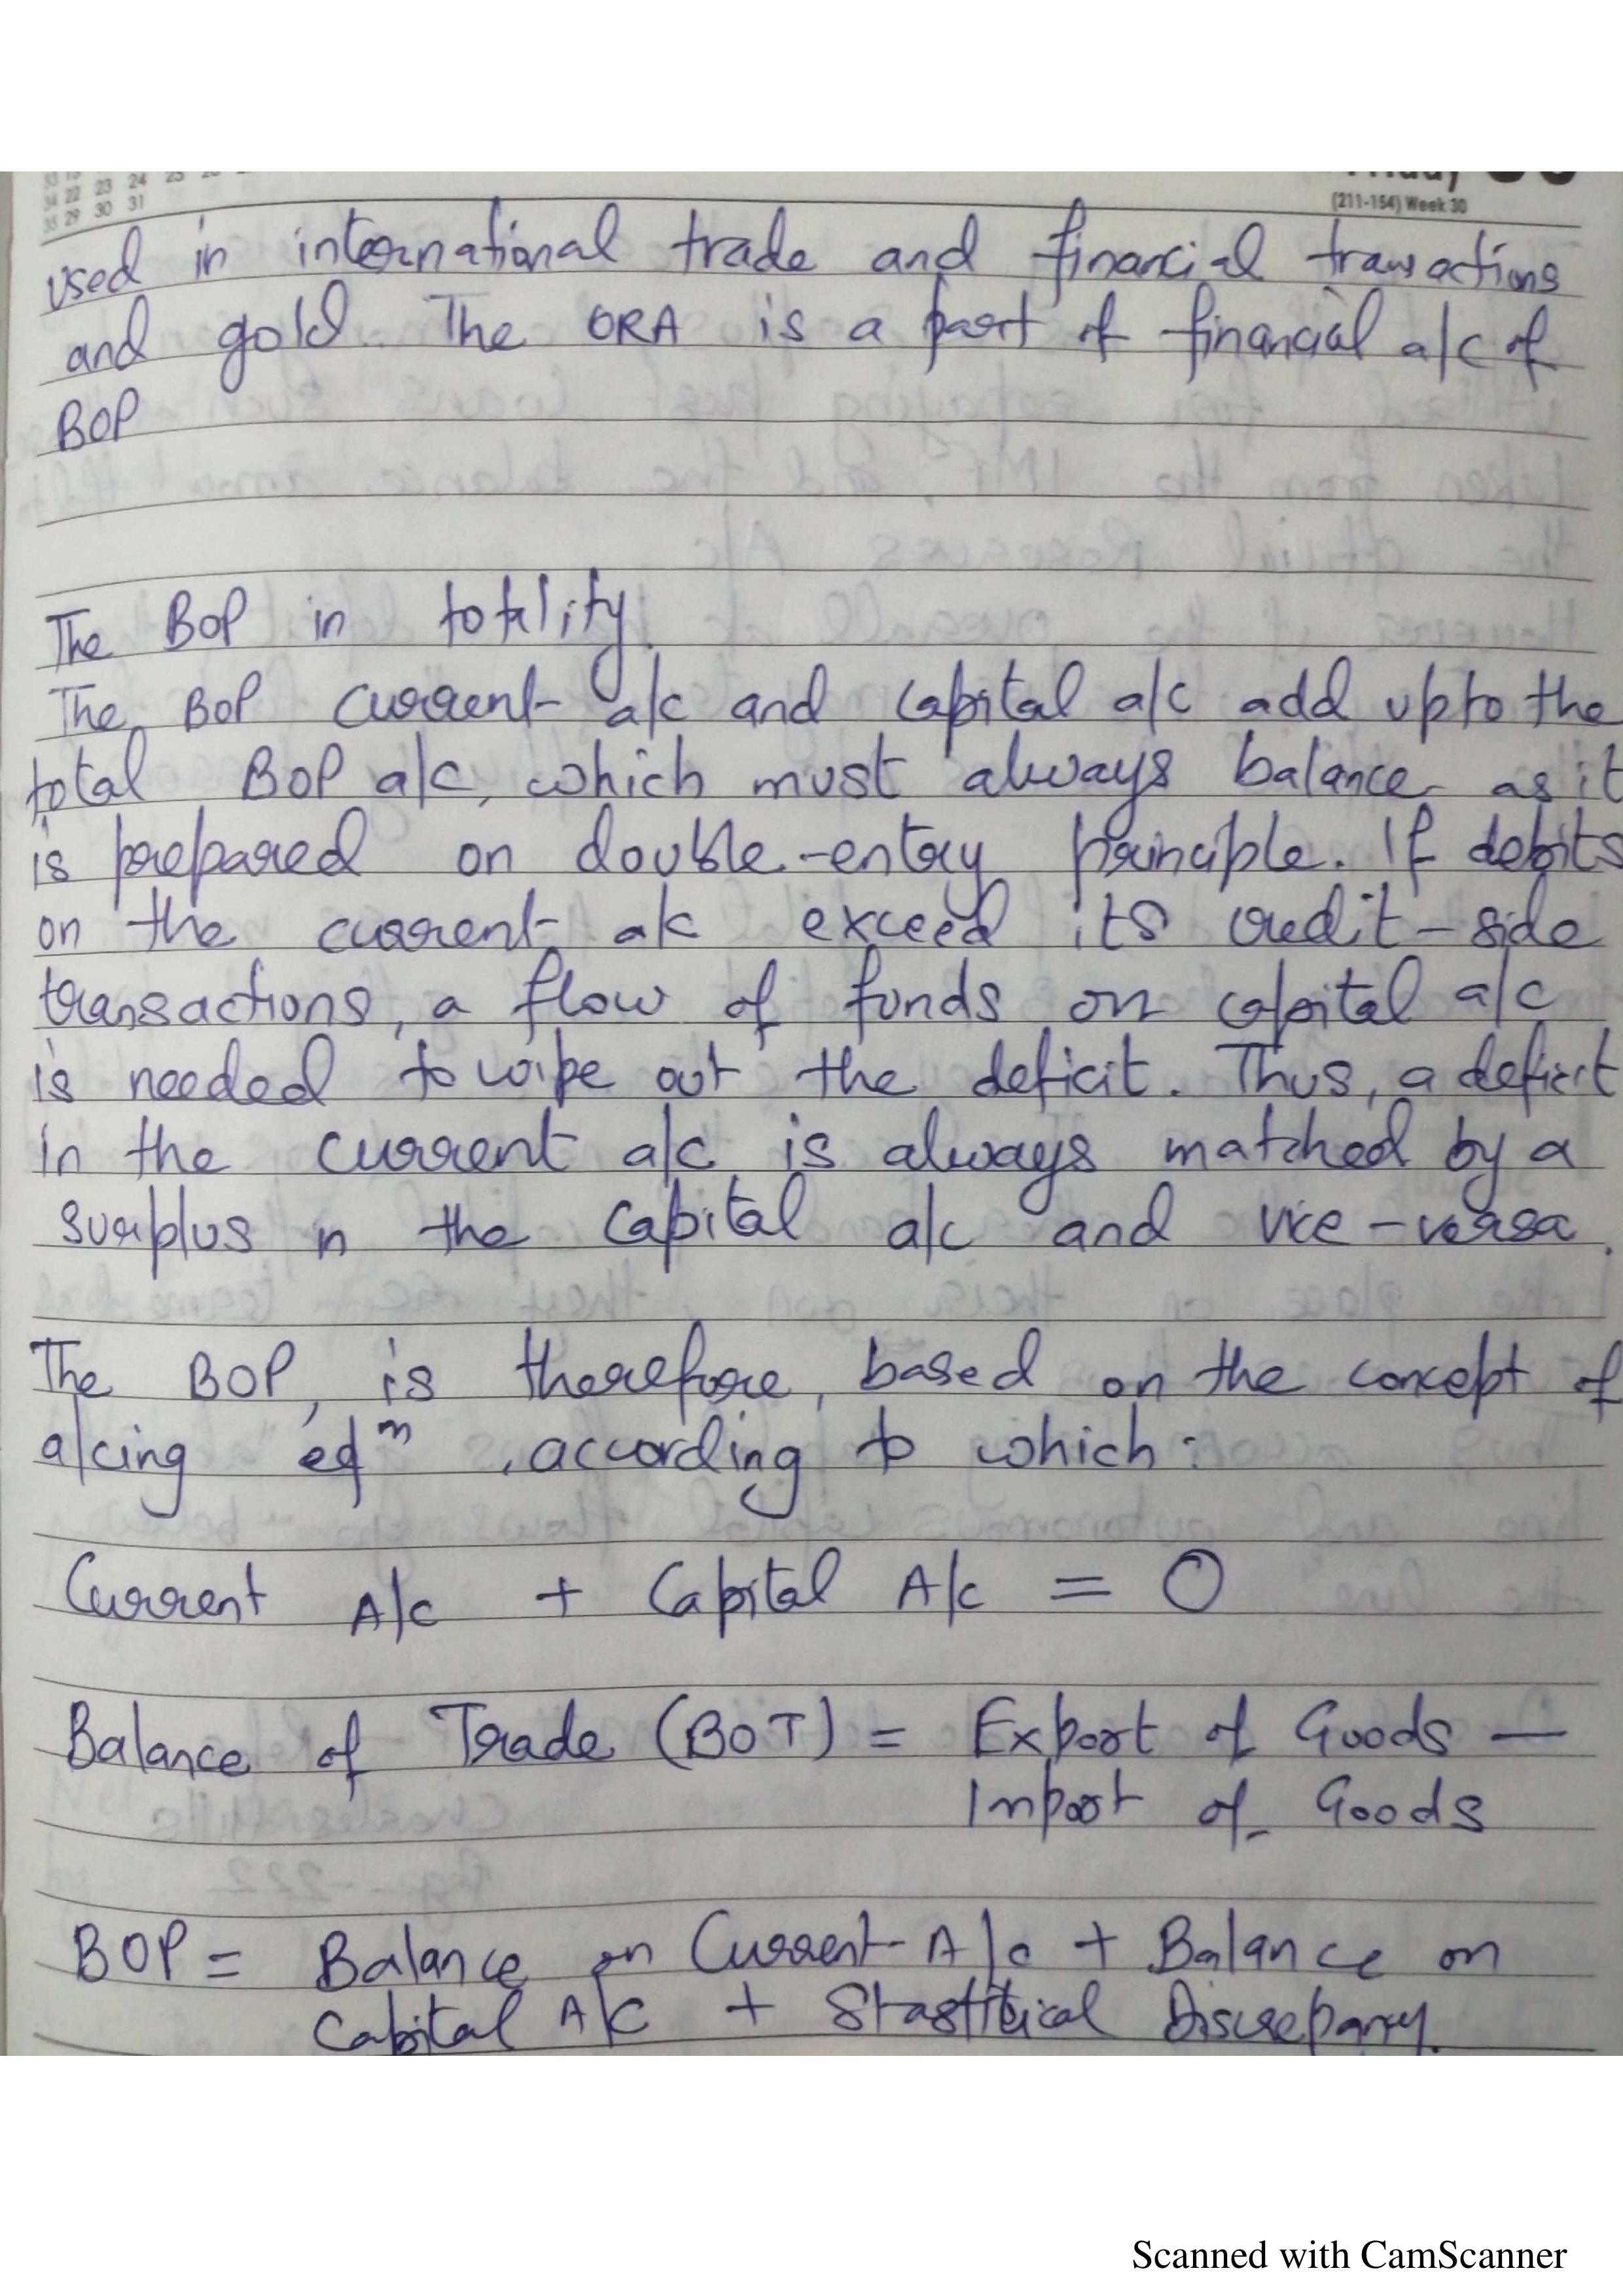 24 25
34 22 23
35 29 30 31
(211-154) Week 30
used in international trade and financial transactions
and gold. The ORA is a part of financial a/c of
BOP
The BOP in totality.
The BOP current a/c and capital a/c add upto the
total BOP a/c, which must always balance as it
is prepared on double-entry principle. If debits
on the current a/c exceed its credit-side
transactions, a flow of funds on capital a/c
is needed to wipe out the deficit. Thus, a deficit
in the current a/c is always matched by a
surplus in the capital a/c and vice-versa.
The BOP, is therefore, based on the concept of
a/cing eqᵐ, according to which:
Current A/c + Capital A/c = 0
Balance of Trade (BOT) = Export of Goods —
Import of Goods
BOP = Balance on Current A/c + Balance on
Capital A/C + Stastitical Discrepancy.
Scanned with CamScanner